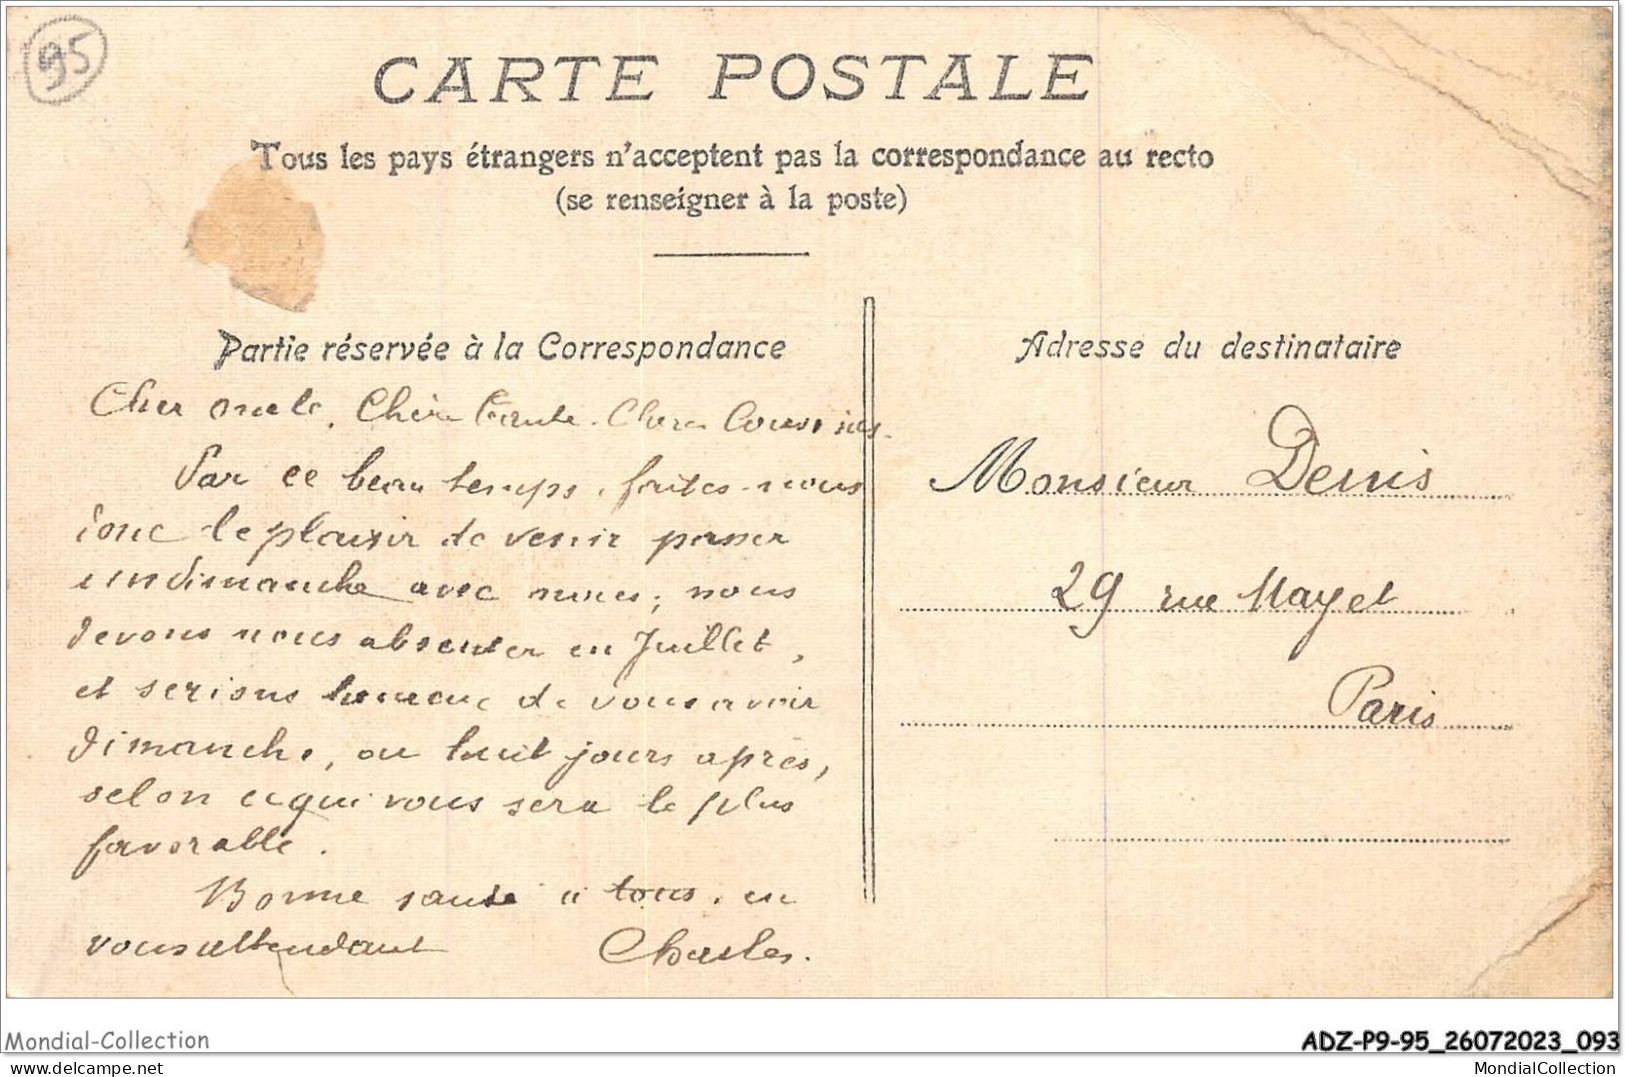 95
CARTE POSTALE
Tous les pays étrangers n'acceptent pas la correspondance au recto
(se renseigner à la poste)
Partie réservée à la Correspondance
Cher oncle, Chère Tante. Chers Cousins.
Par ce beau temps, faites-nous
donc le plaisir de venir passer
un dimanche avec nous; nous
devons nous absenter en Juillet,
et serions heureux de vous avoir
dimanche, ou huit jours après,
selon ce qui vous sera le plus
favorable.
Bonne santé à tous, en
vous attendant Charles.
Adresse du destinataire
Monsieur Denis
29 rue Mayet
Paris
Mondial-Collection
ADZ-P9-95_26072023_093
MondialCollection